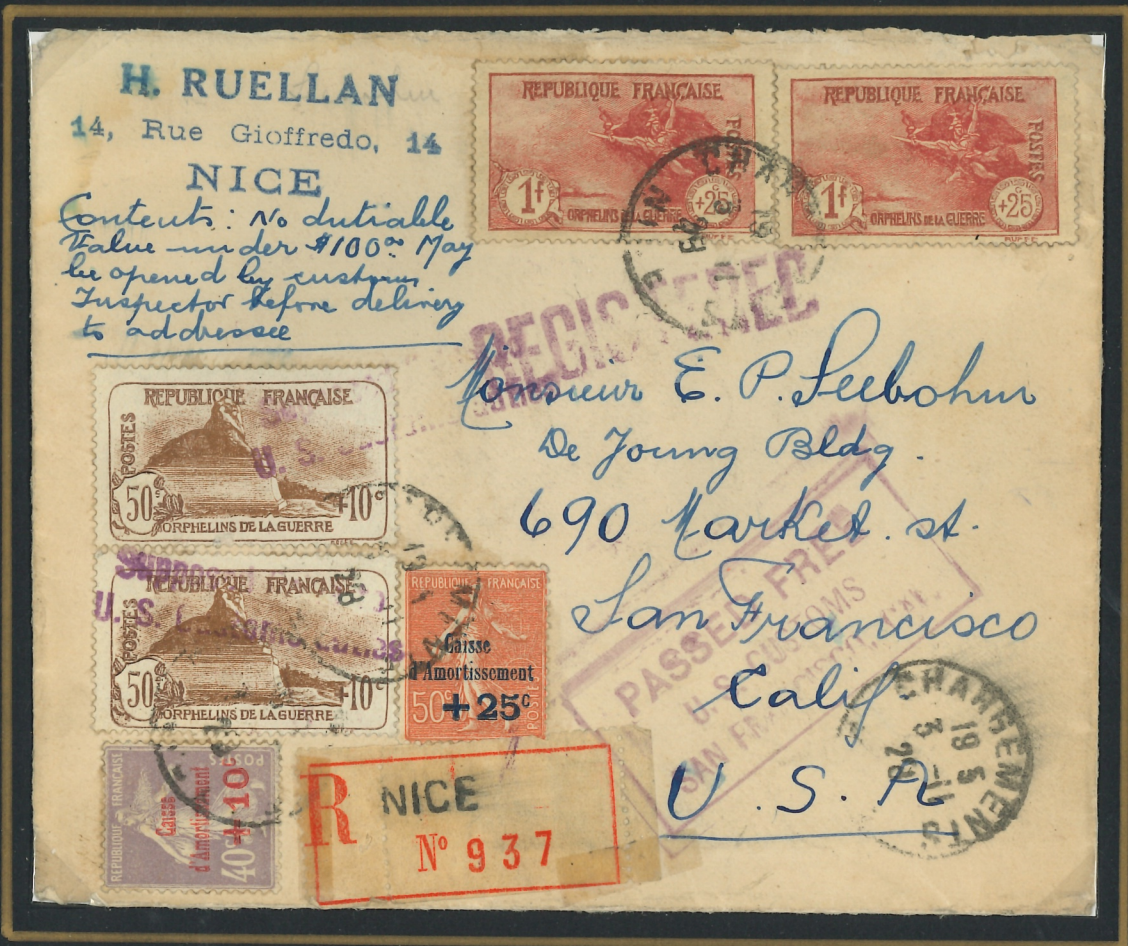 H. RUELLAN
14, Rue Gioffredo, 14
NICE
Contents: No dutiable
Value under $100⁰⁰ May
be opened by customs
Inspector before delivery
to addressee
REPUBLIQUE FRANÇAISE
POSTES
1f
+25
ORPHELINS DE LA GUERRE
REPUBLIQUE FRANÇAISE
POSTES
1f
+25
ORPHELINS DE LA GUERRE
REGISTERED
Monsieur E. P. Seebohm
De Young Bldg.
690 Market st.
San Francisco
Calif
U. S. A
REPUBLIQUE FRANÇAISE
POSTES
50c +10c
ORPHELINS DE LA GUERRE
U. S.
REPUBLIQUE FRANÇAISE
POSTES
50c +10c
ORPHELINS DE LA GUERRE
Supposed
U. S.
REPUBLIQUE FRANÇAISE
Caisse
d'Amortissement
+25c
50c
POSTES
PASSED FREE
U.S. CUSTOMS
SAN FRANCISCO, CAL.
CHARGEMENTS
19 5
3 -11
28
REPUBLIQUE FRANÇAISE
POSTES
Caisse
d'Amortissement
+10
40c
R
NICE
No 937